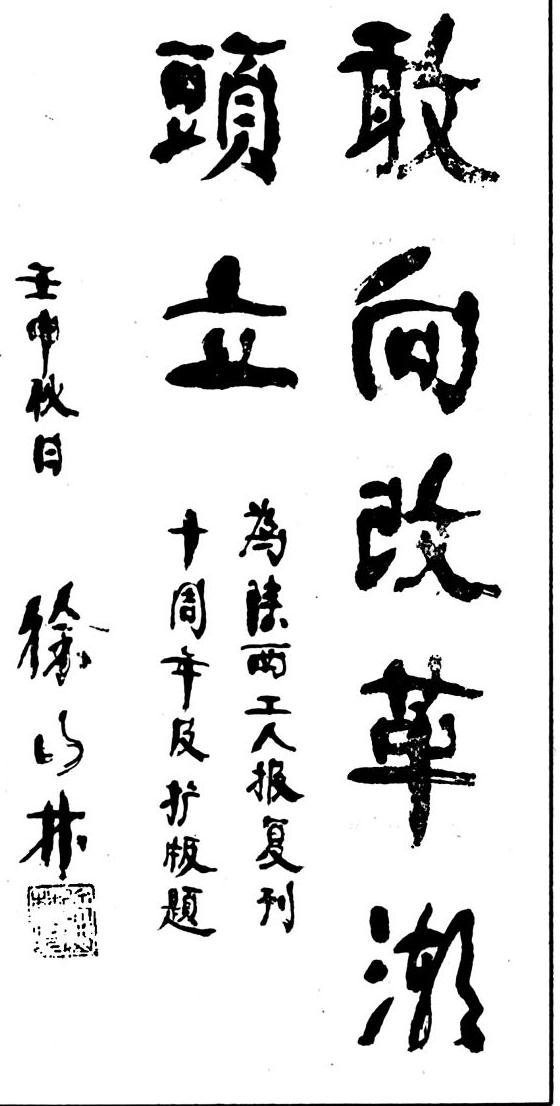 敢向改革潮
頭立
為陕西工人报复刊
十周年及扩版題
壬申秋日
徐山林